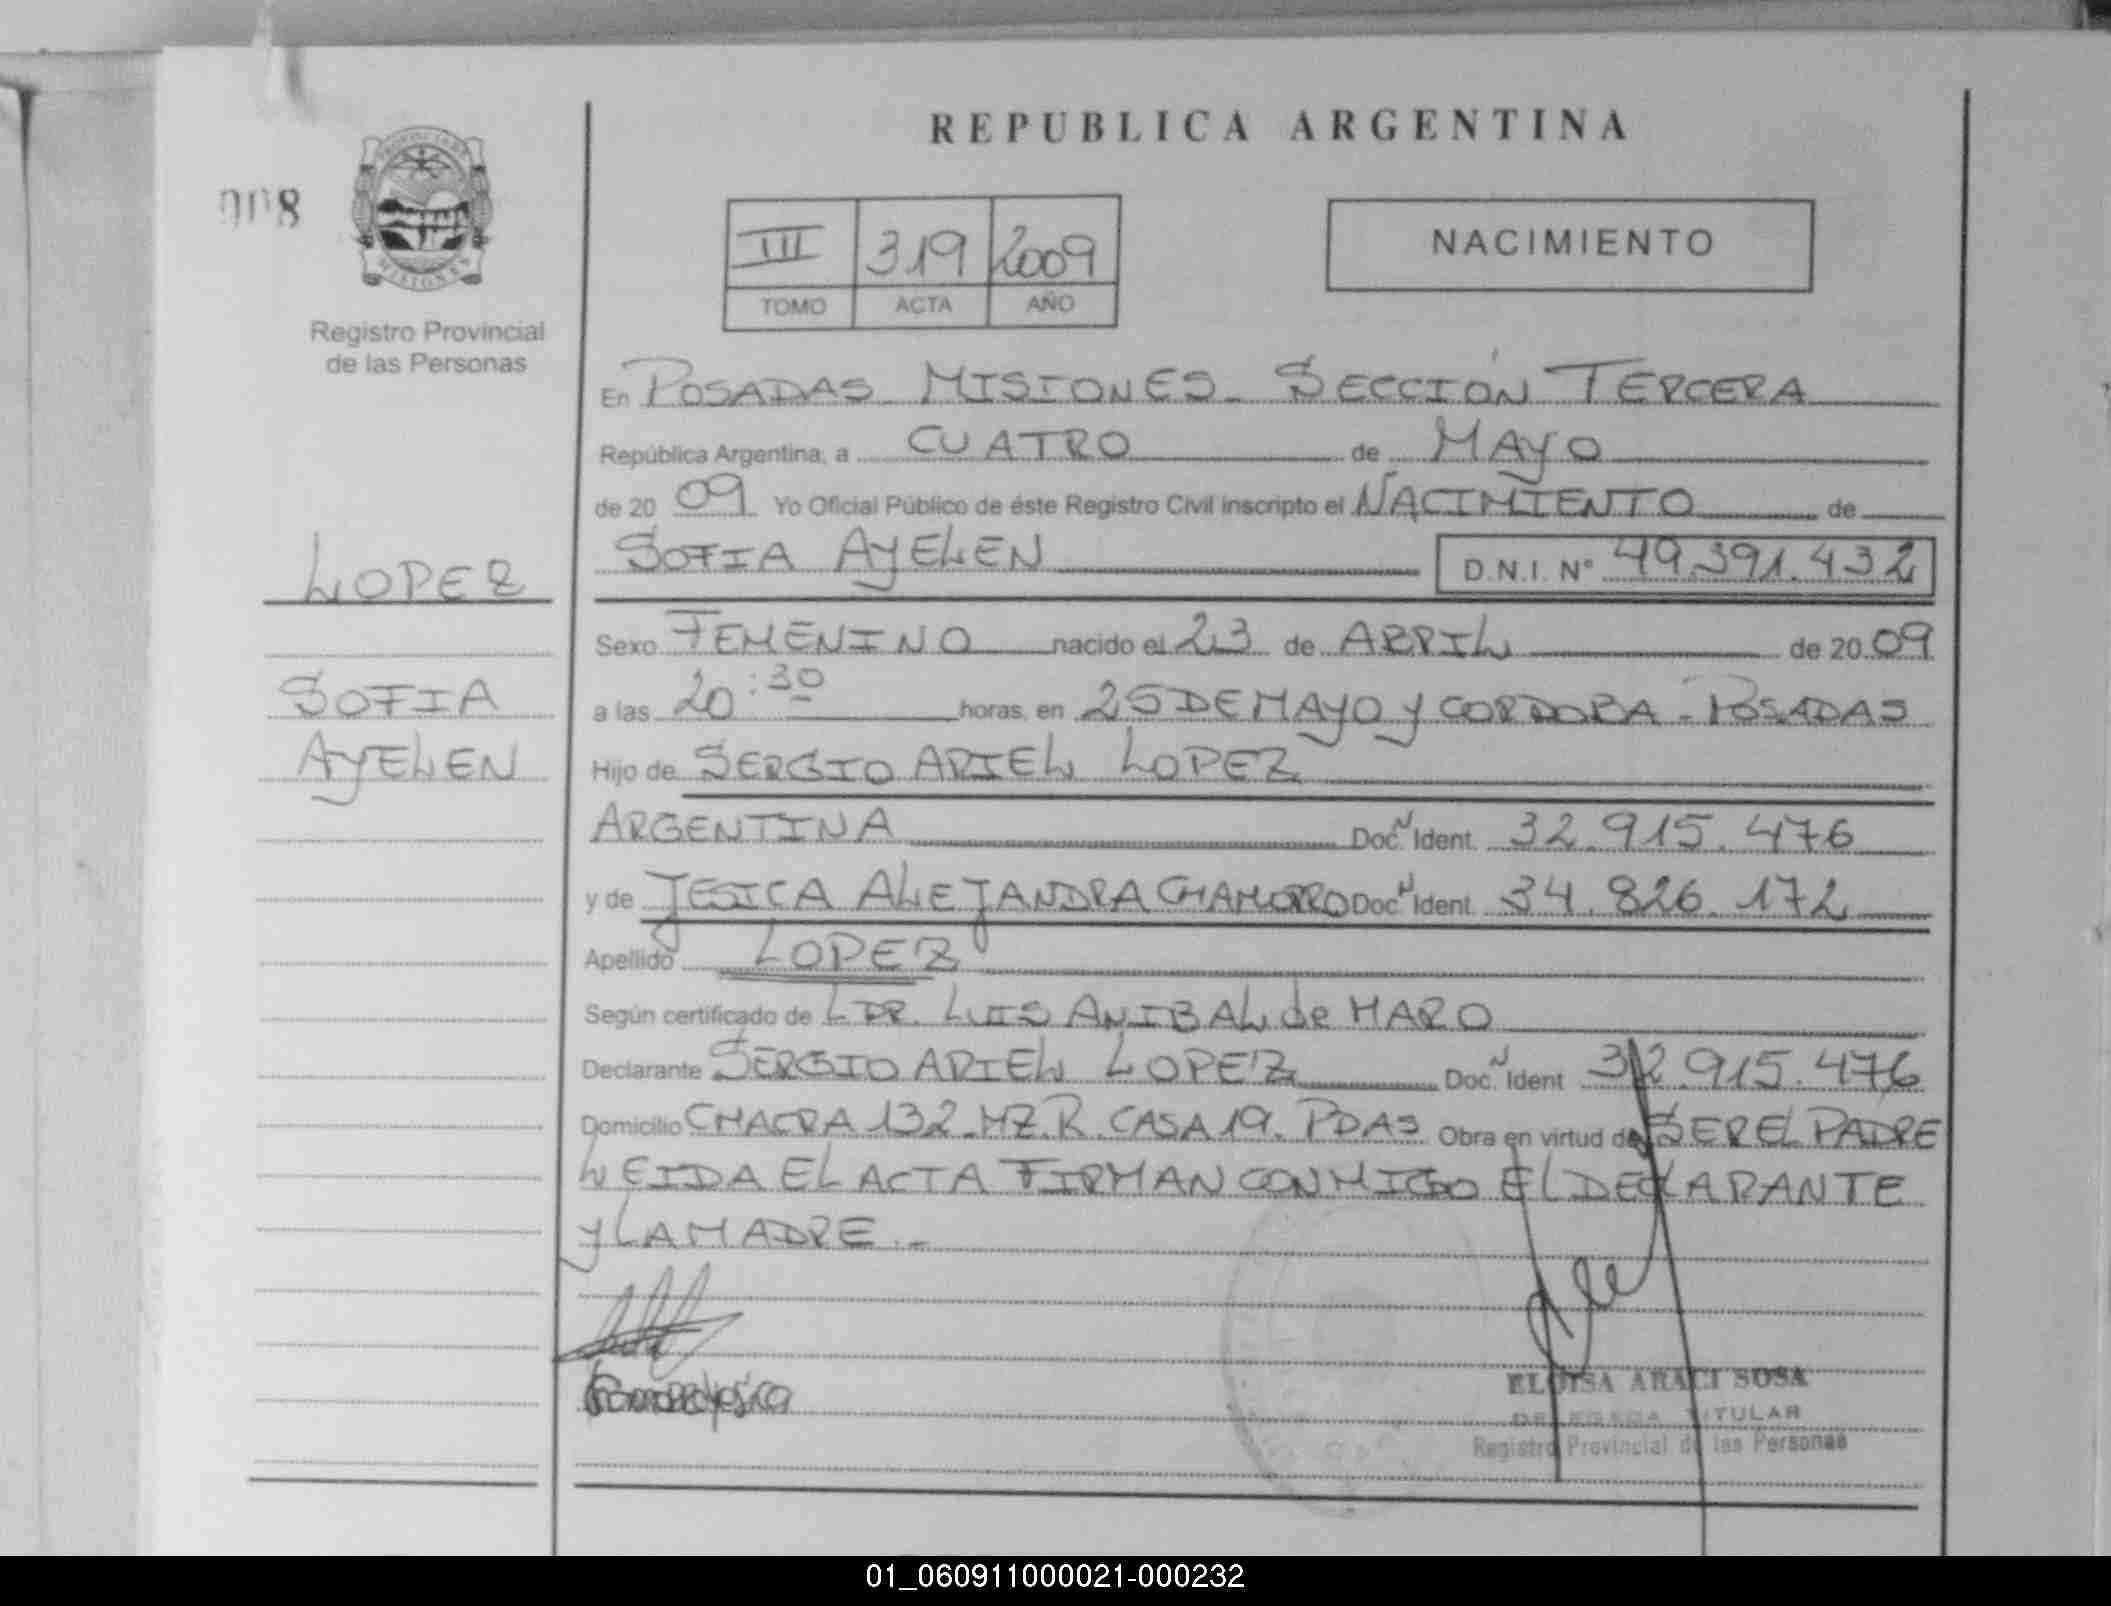 REPUBLICA ARGENTINA
008
PROVINCIA DE
MISIONES
Registro Provincial
de las Personas
III 319 2009
TOMO ACTA AÑO
NACIMIENTO
En POSADAS MISIONES - SECCIÓN TERCERA
República Argentina, a CUATRO de MAYO
de 20 09 Yo Oficial Público de éste Registro Civil inscripto el NACIMIENTO de
SOFIA AYELEN D.N.I. Nº 49.391.432
LOPEZ
SOFIA
AYELEN
Sexo FEMENINO nacido el 23 de ABRIL de 20 09
a las 20:30 horas, en 25 DE MAYO Y CORDOBA - POSADAS
Hijo de SERGIO ARIEL LOPEZ
ARGENTINA Doc. N Ident. 32.915.476
y de JESICA ALEJANDRA CHAMORRO Doc. N Ident. 34.826.172
Apellido LOPEZ
Según certificado de L DR. LUIS ANIBAL de HARO
Declarante SERGIO ARIEL LOPEZ Doc. N Ident 32.915.476
Domicilio CHACRA 132-MZ.R. CASA 19. PDAS Obra en virtud de SER EL PADRE
LEIDA EL ACTA FIRMAN CONMIGO EL DECLARANTE
Y LA MADRE.-
ELOISA ARACI SOSA
DELEGADA TITULAR
Registro Provincial de las Personas
01_060911000021-000232